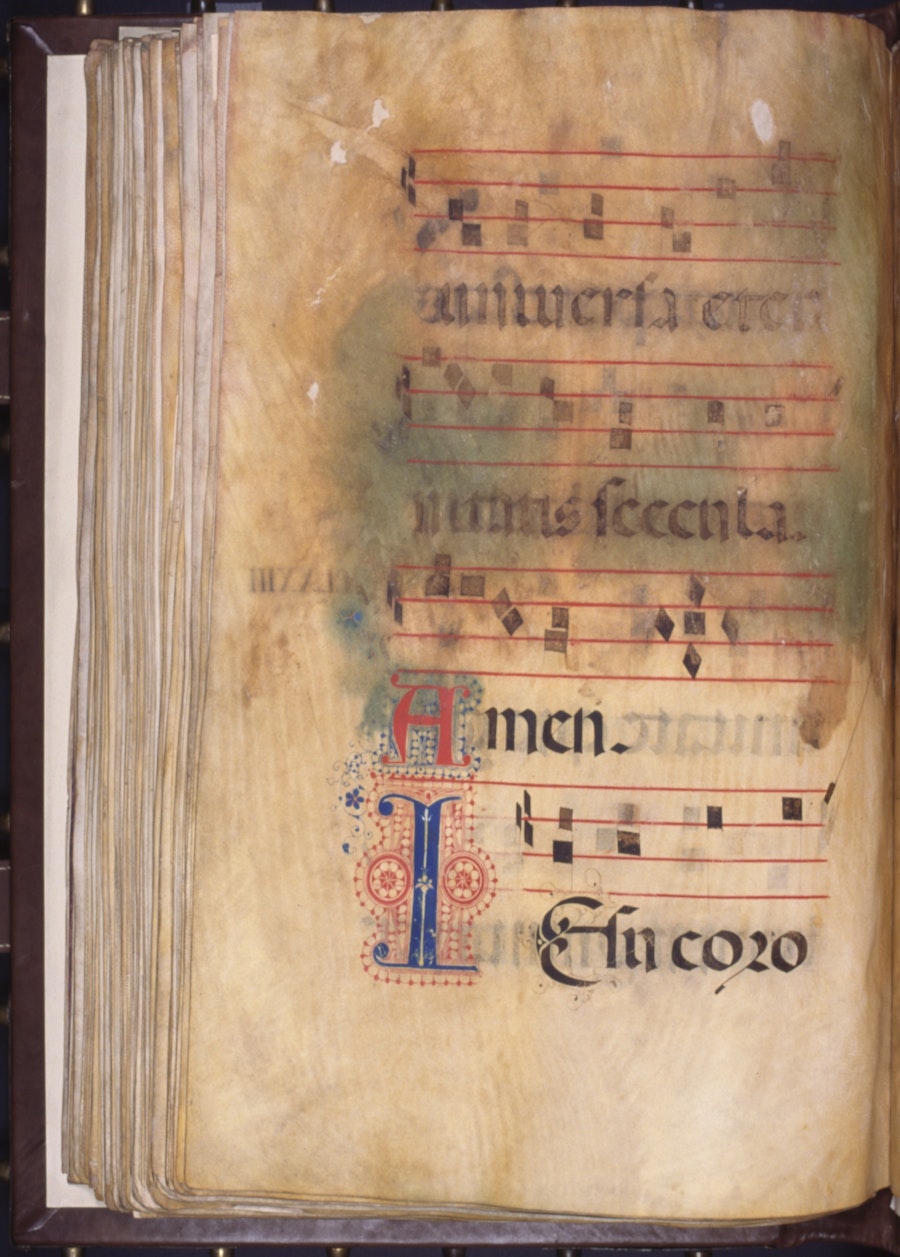 auniuersa eter
nitatis secula.
Amen.
IEsu coro